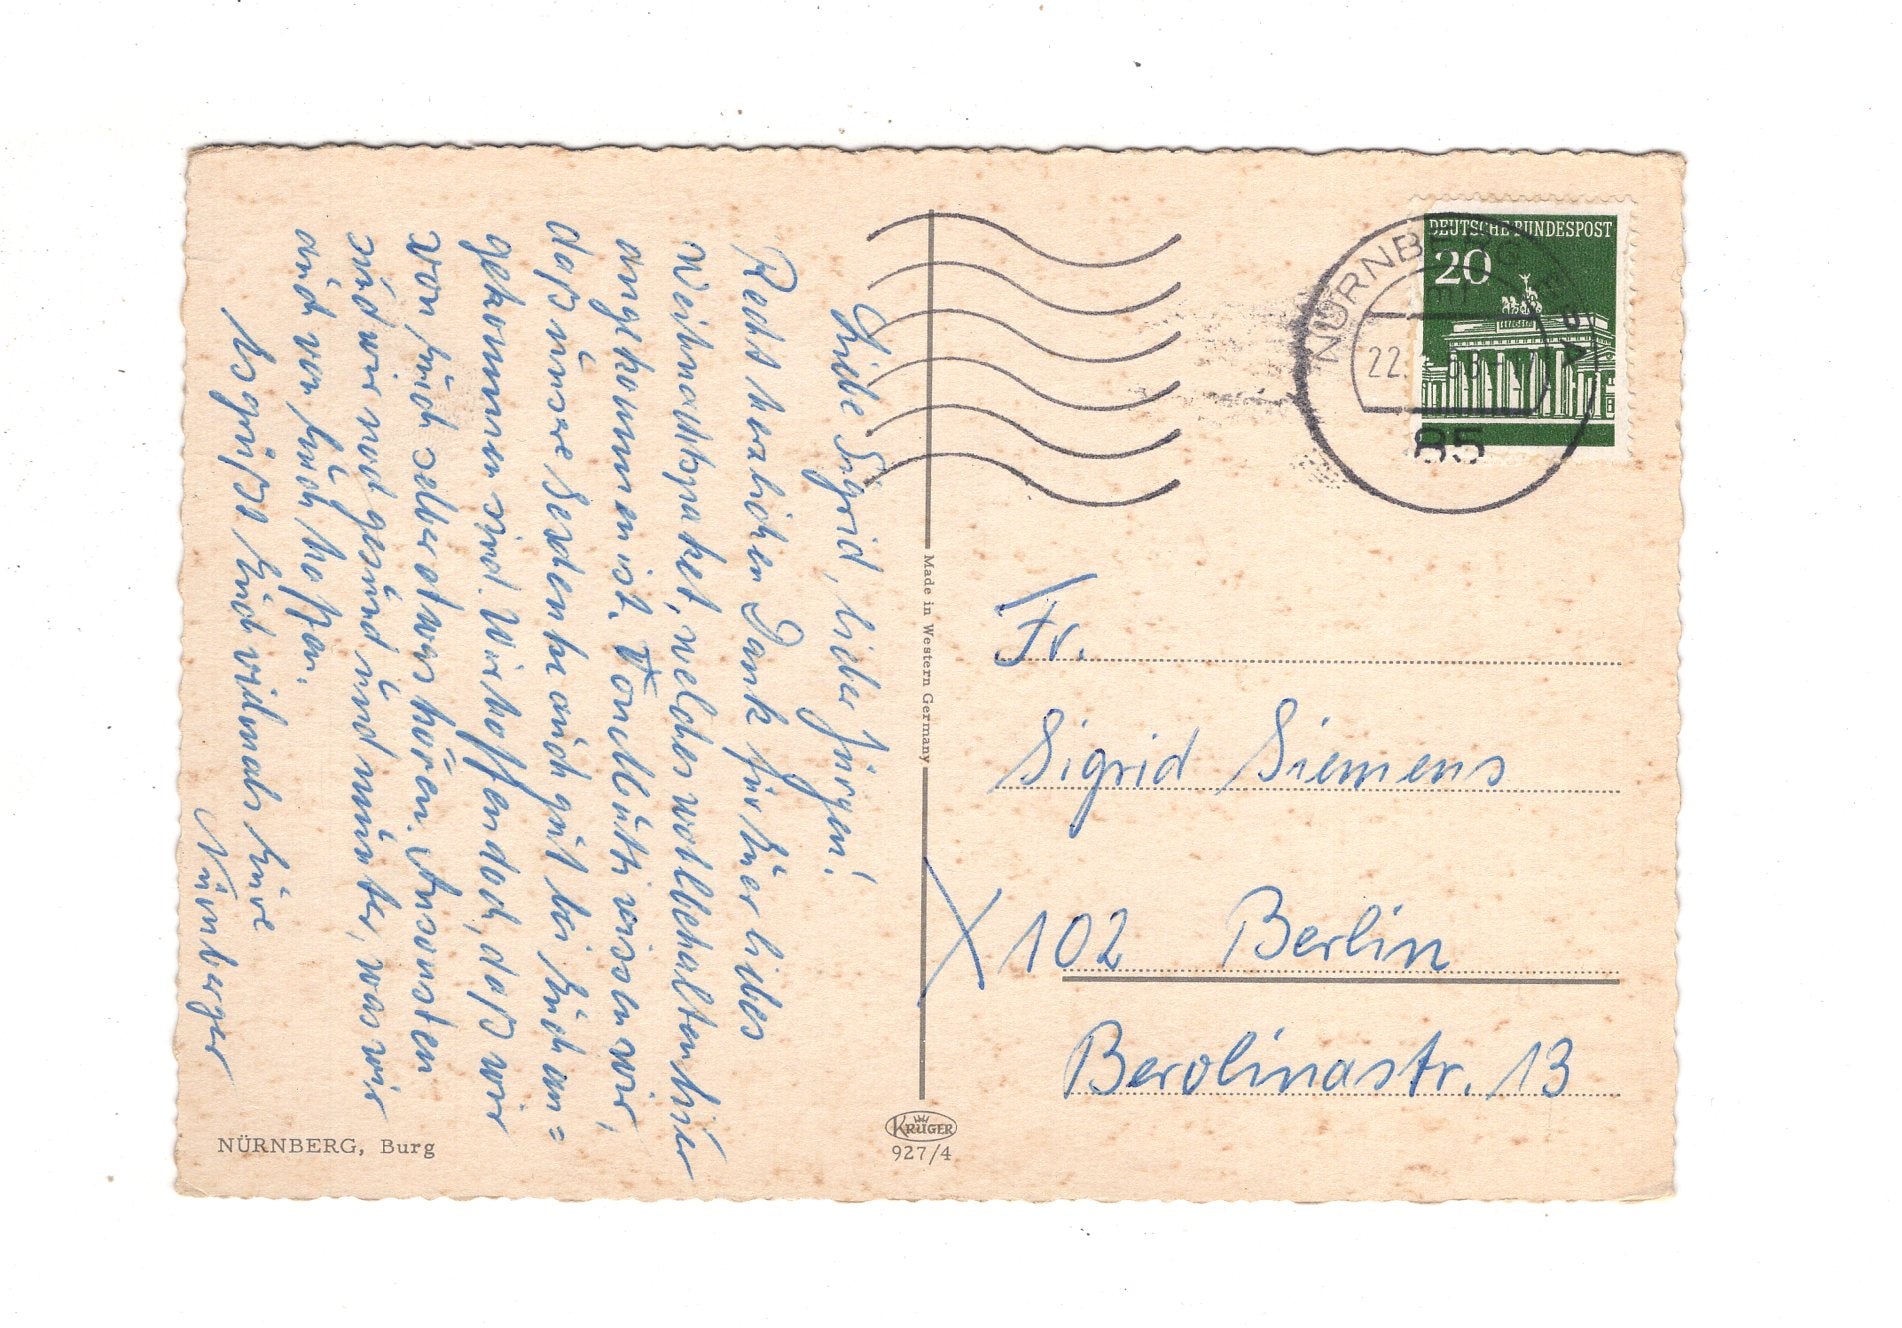 Liebe Sigrid, lieber Jürgen!
Recht herzlichen Dank für Euer liebes
Weihnachtspaket, welches wohlbehalten hier
angekommen ist. wissen wir,
daß unsere Geschenke auch gut bei Euch an=
gekommen sind. Wir hoffen doch, daß wir
von Euch selber etwas hören. Ansonsten
sind wir noch gesund und munter, was wir
auch von Euch hoffen.
Es grüßt Euch vielmals Eure
Nürnberger
NÜRNBERG, Burg
Made in Western Germany
KRÜGER
927/4
DEUTSCHE BUNDESPOST
20
NÜRNBERG
22.
85
Fr.
Sigrid Siemens
X 102 Berlin
Berolinastr. 13